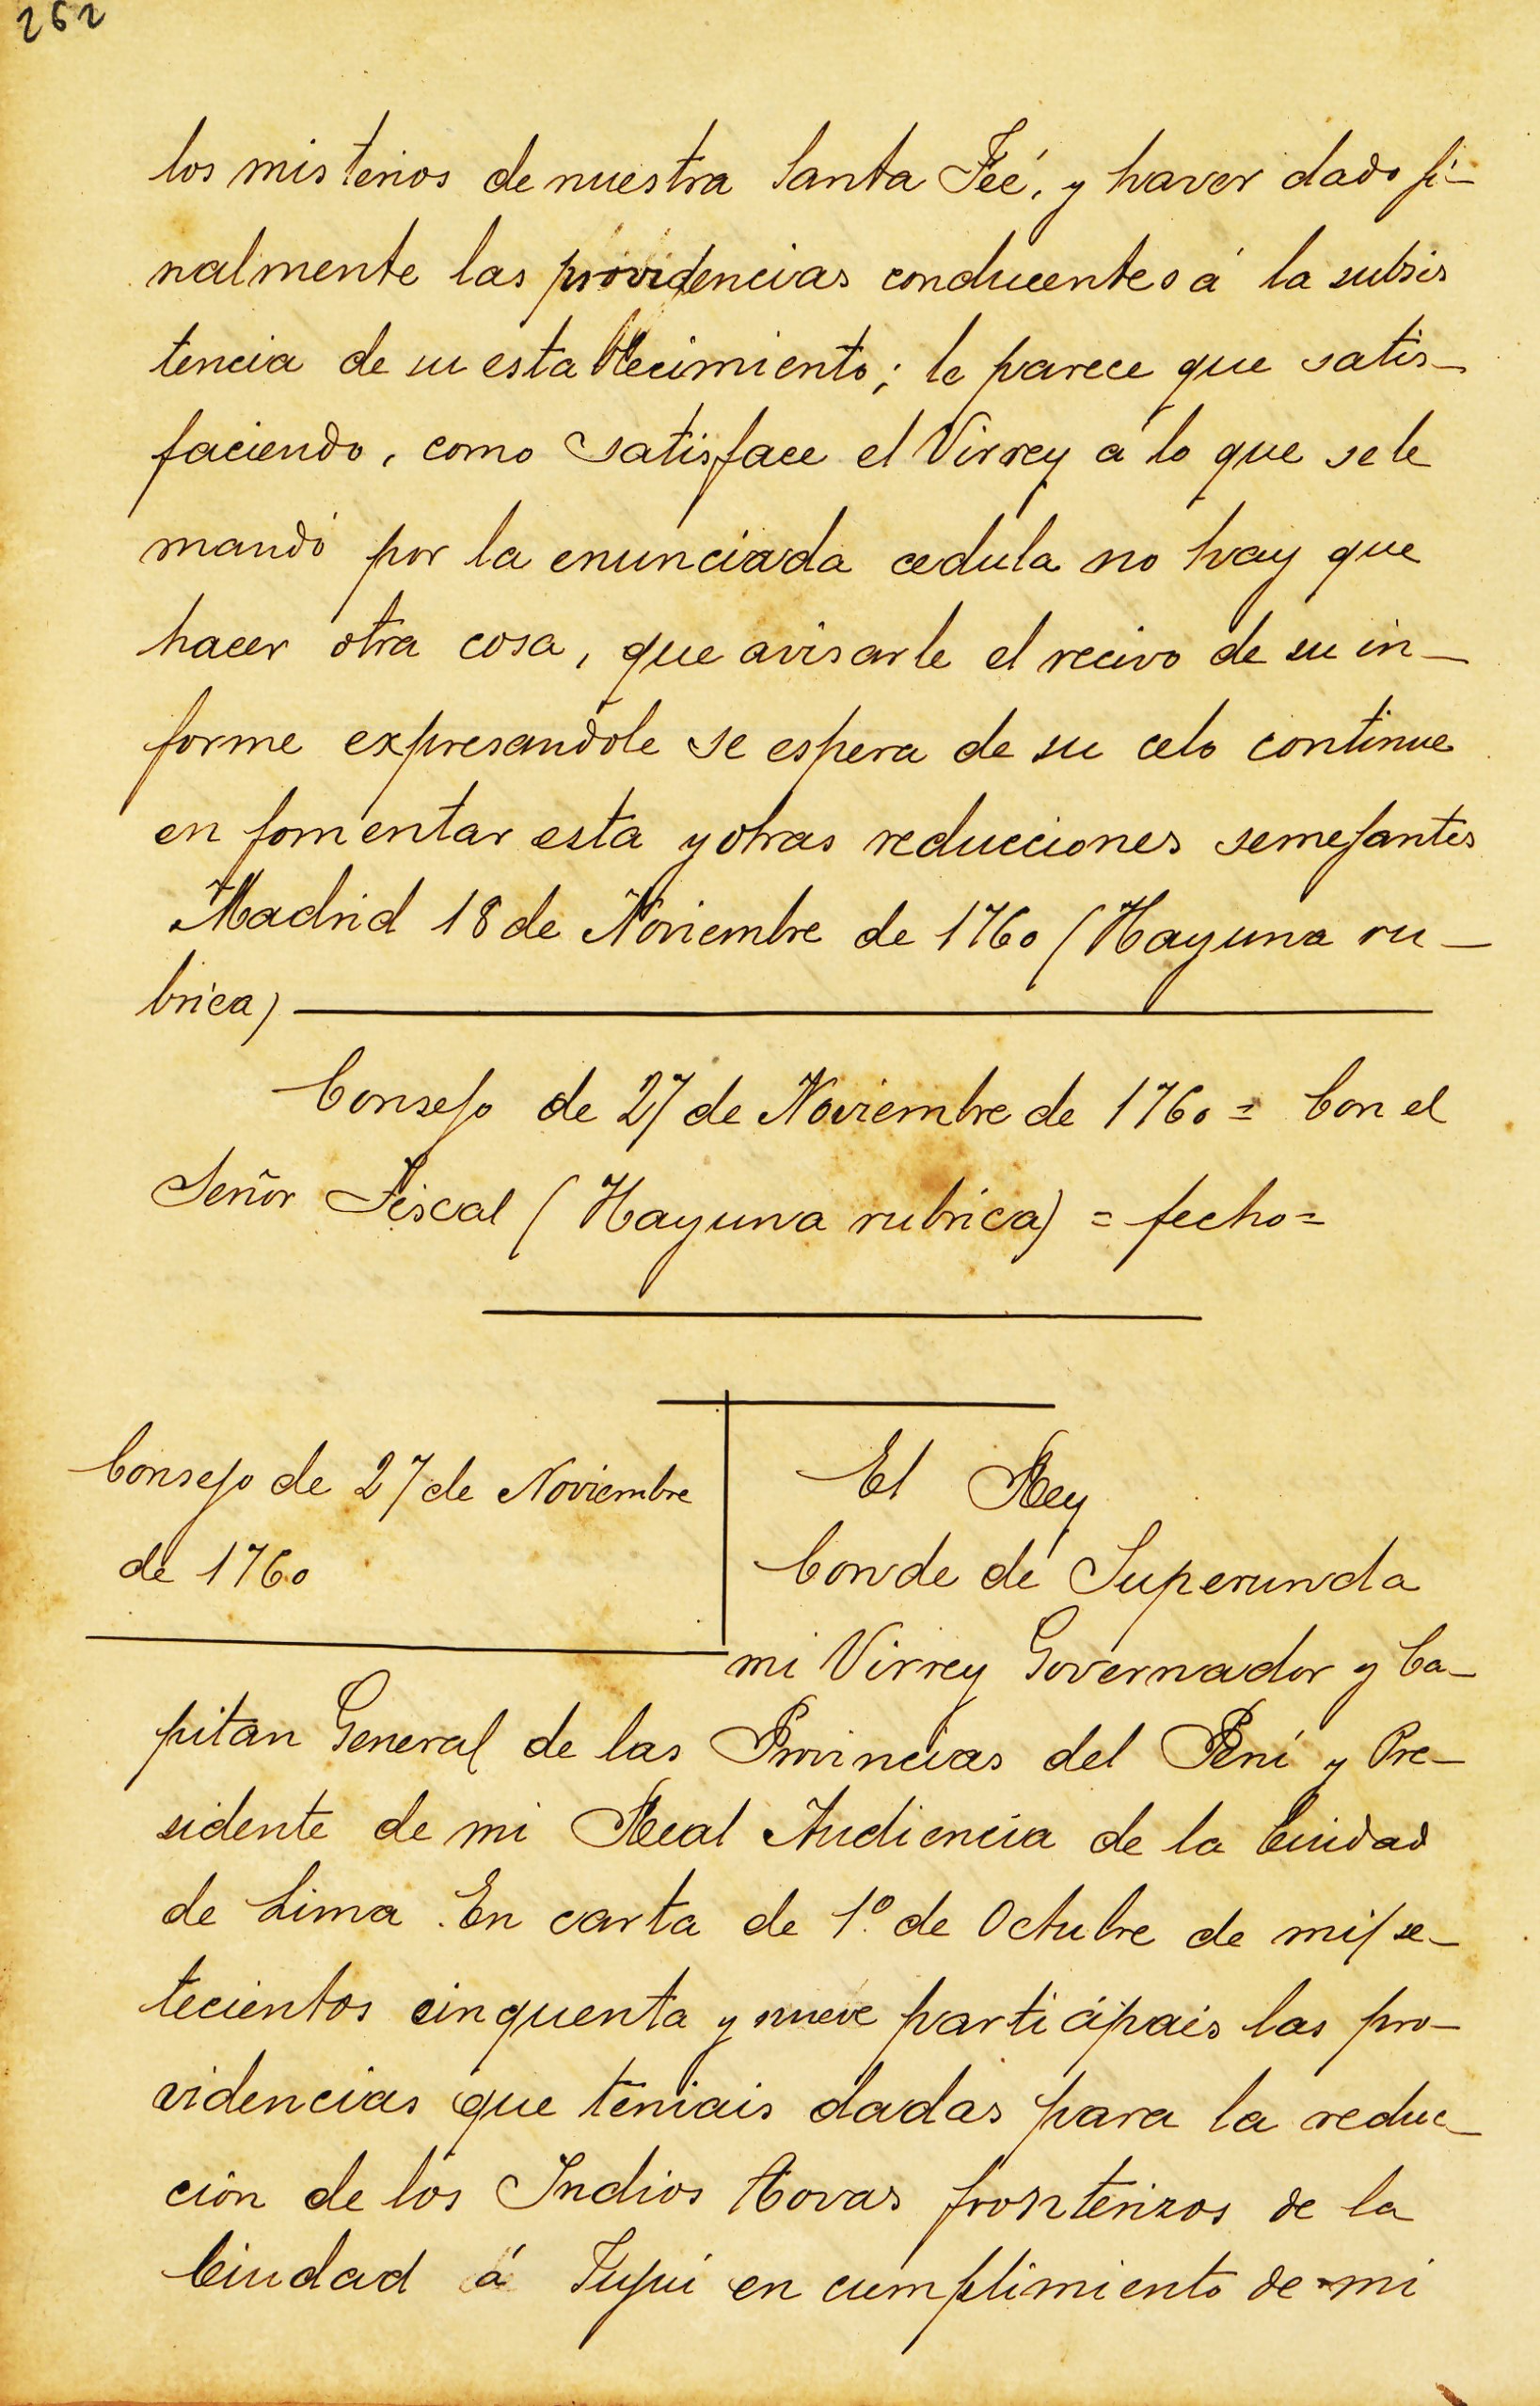 262
los misterios de nuestra Santa Feé, y haver dado fi-
nalmente las providencias conducentes á la subsis
tencia de su establecimiento; le parece que satis-
faciendo, como satisface el Virrey á lo que se le
mandó por la enunciada cedula no hay que
hacer otra cosa, que avisarle el recivo de su in-
forme expresandole se espera de su celo continue
en fomentar esta y otras reducciones semejantes
Madrid 18 de Noviembre de 1760 (Hay una ru-
brica)
Consejo de 27 de Noviembre de 1760 = Con el
Señor Fiscal (Hay una rubrica) = fecho =
Consejo de 27 de Noviembre
de 1760
El Rey
Conde de Superunda
mi Virrey Governador y Ca-
pitan General de las Provincias del Perú y Pre-
sidente de mi Real Audiencia de la Ciudad
de Lima. En carta de 1º de Octubre de mil se-
tecientos cinquenta y nueve participais las pro-
videncias que teniais dadas para la reduc-
ción de los Indios Tovas fronterizos de la
Ciudad á Jujui en cumplimiento de mi